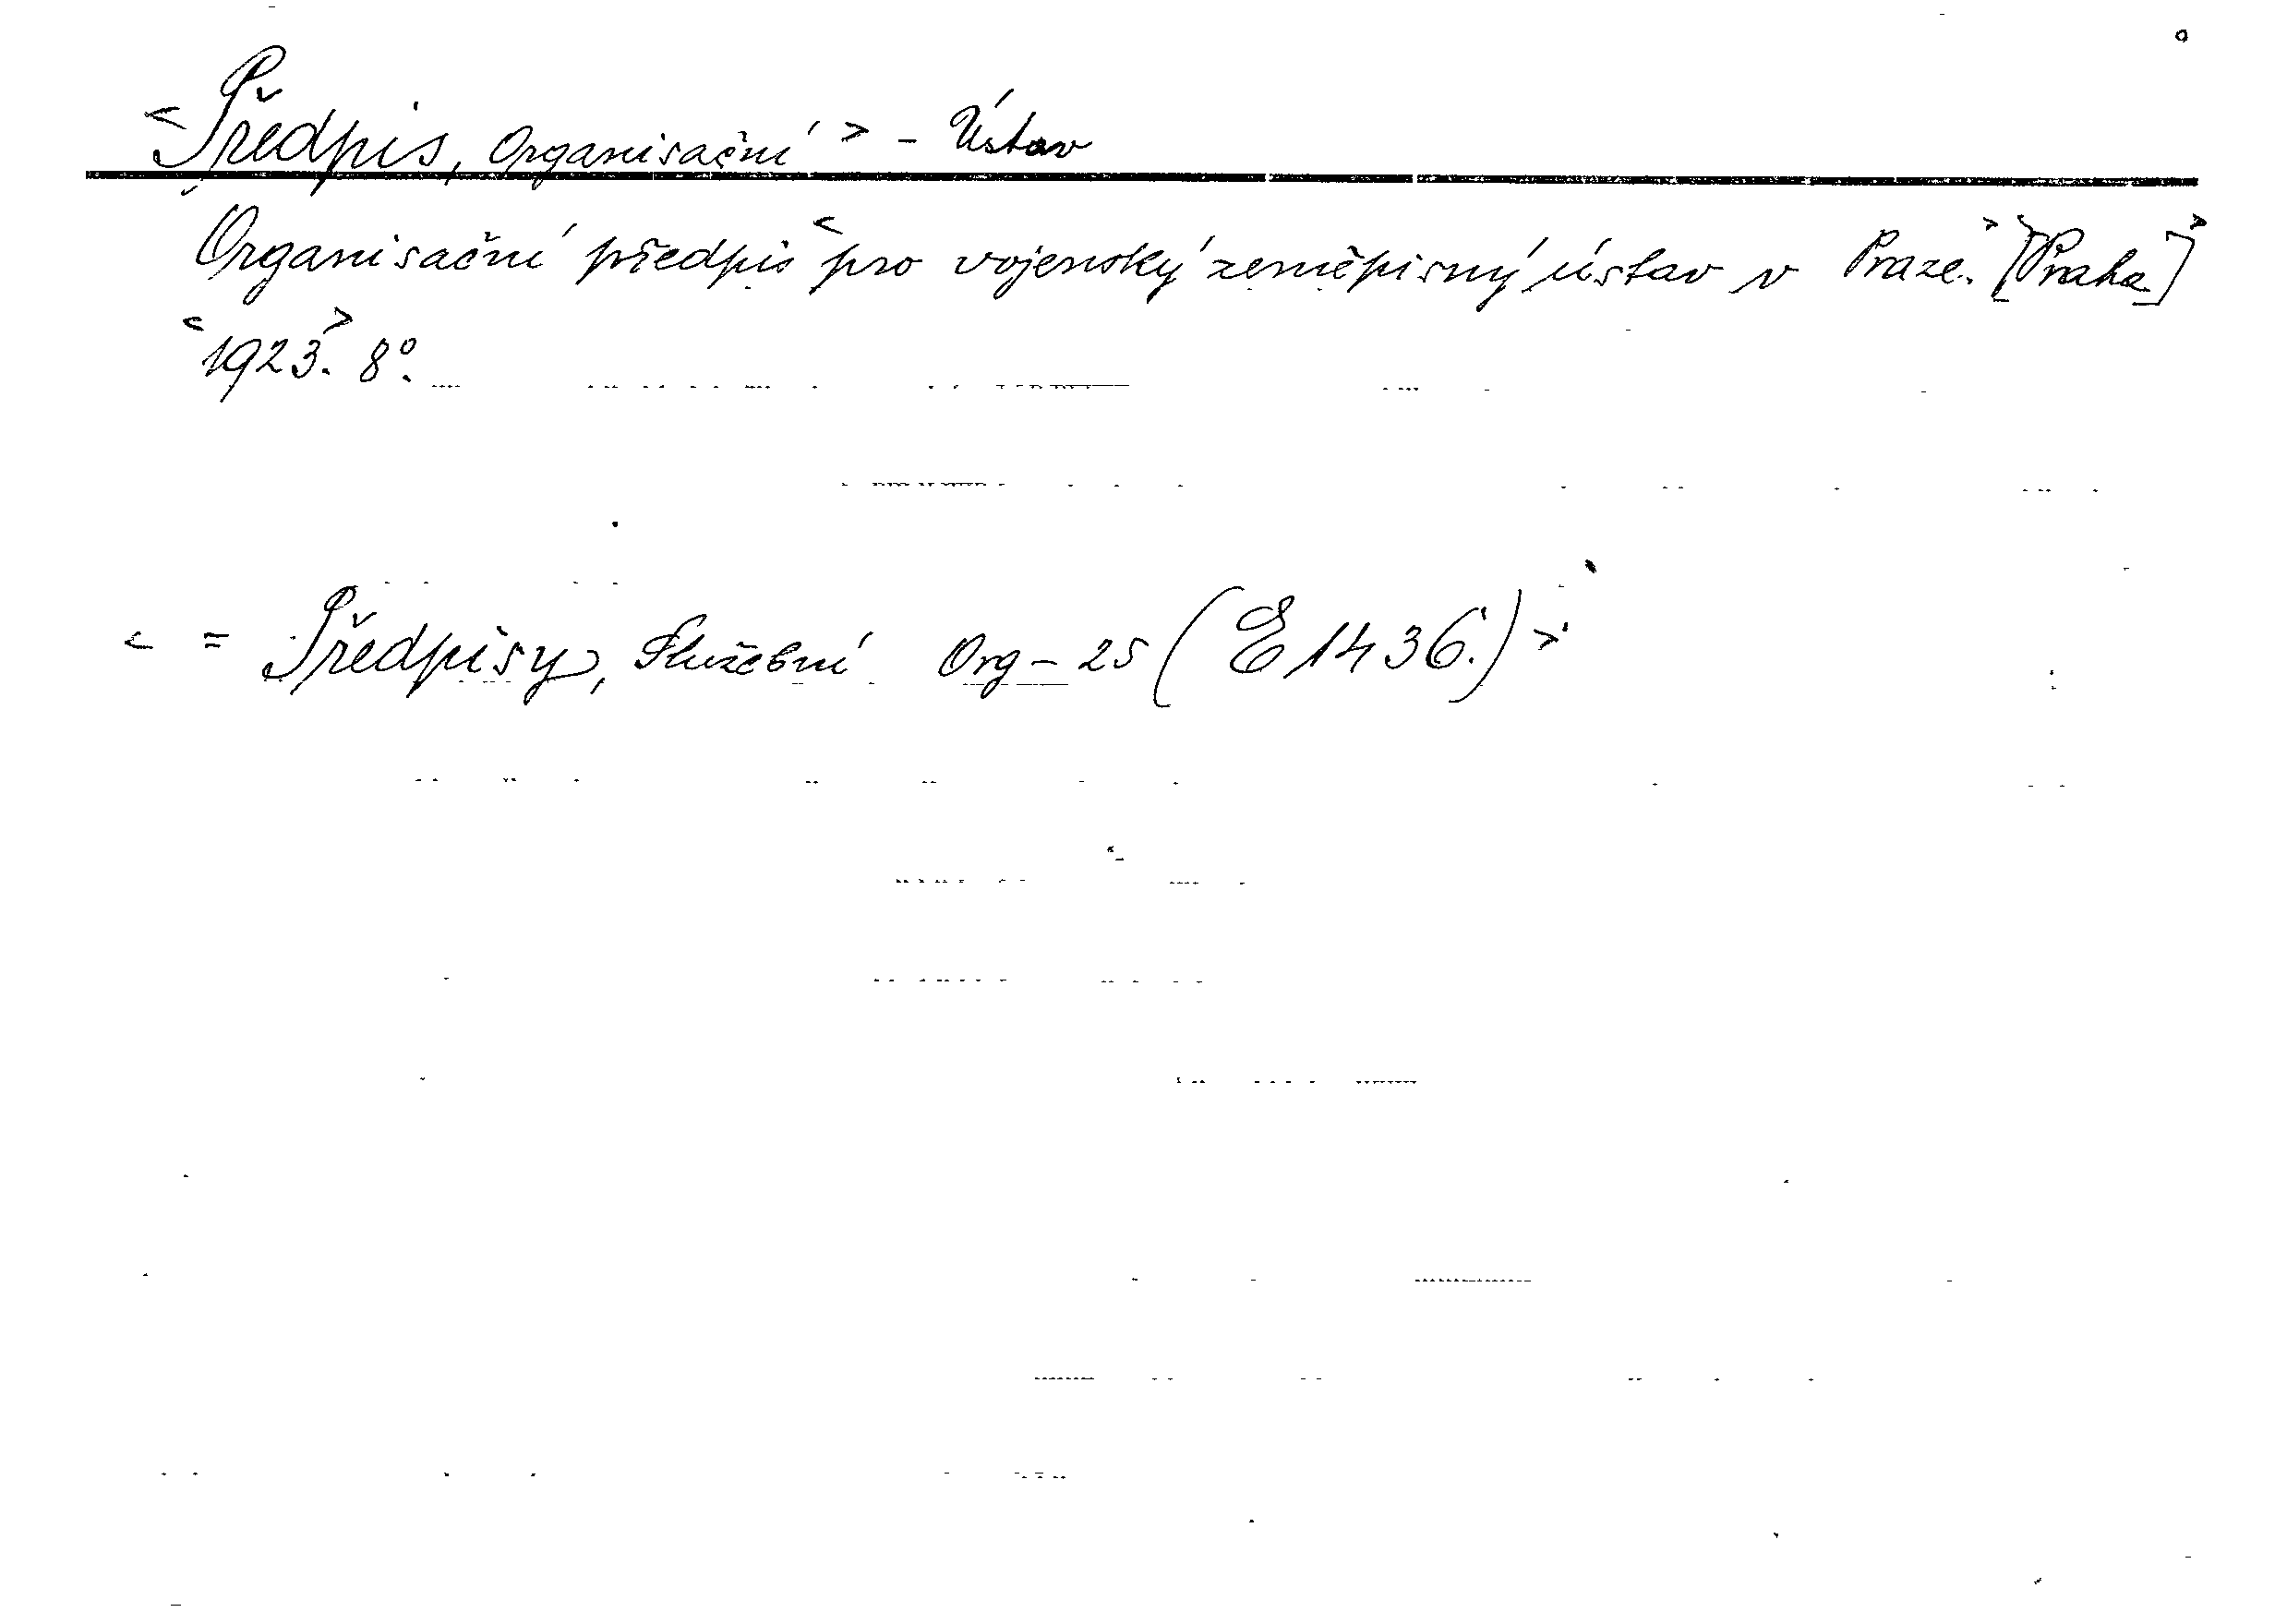 <Předpis, Organisační> - Ústav
Organisační předpis <pro vojenský zeměpisný ústav v Praze.> [Praha]>
<1923.> 8°.
< = Předpisy, Služební Org - 25 (E 1436.) >